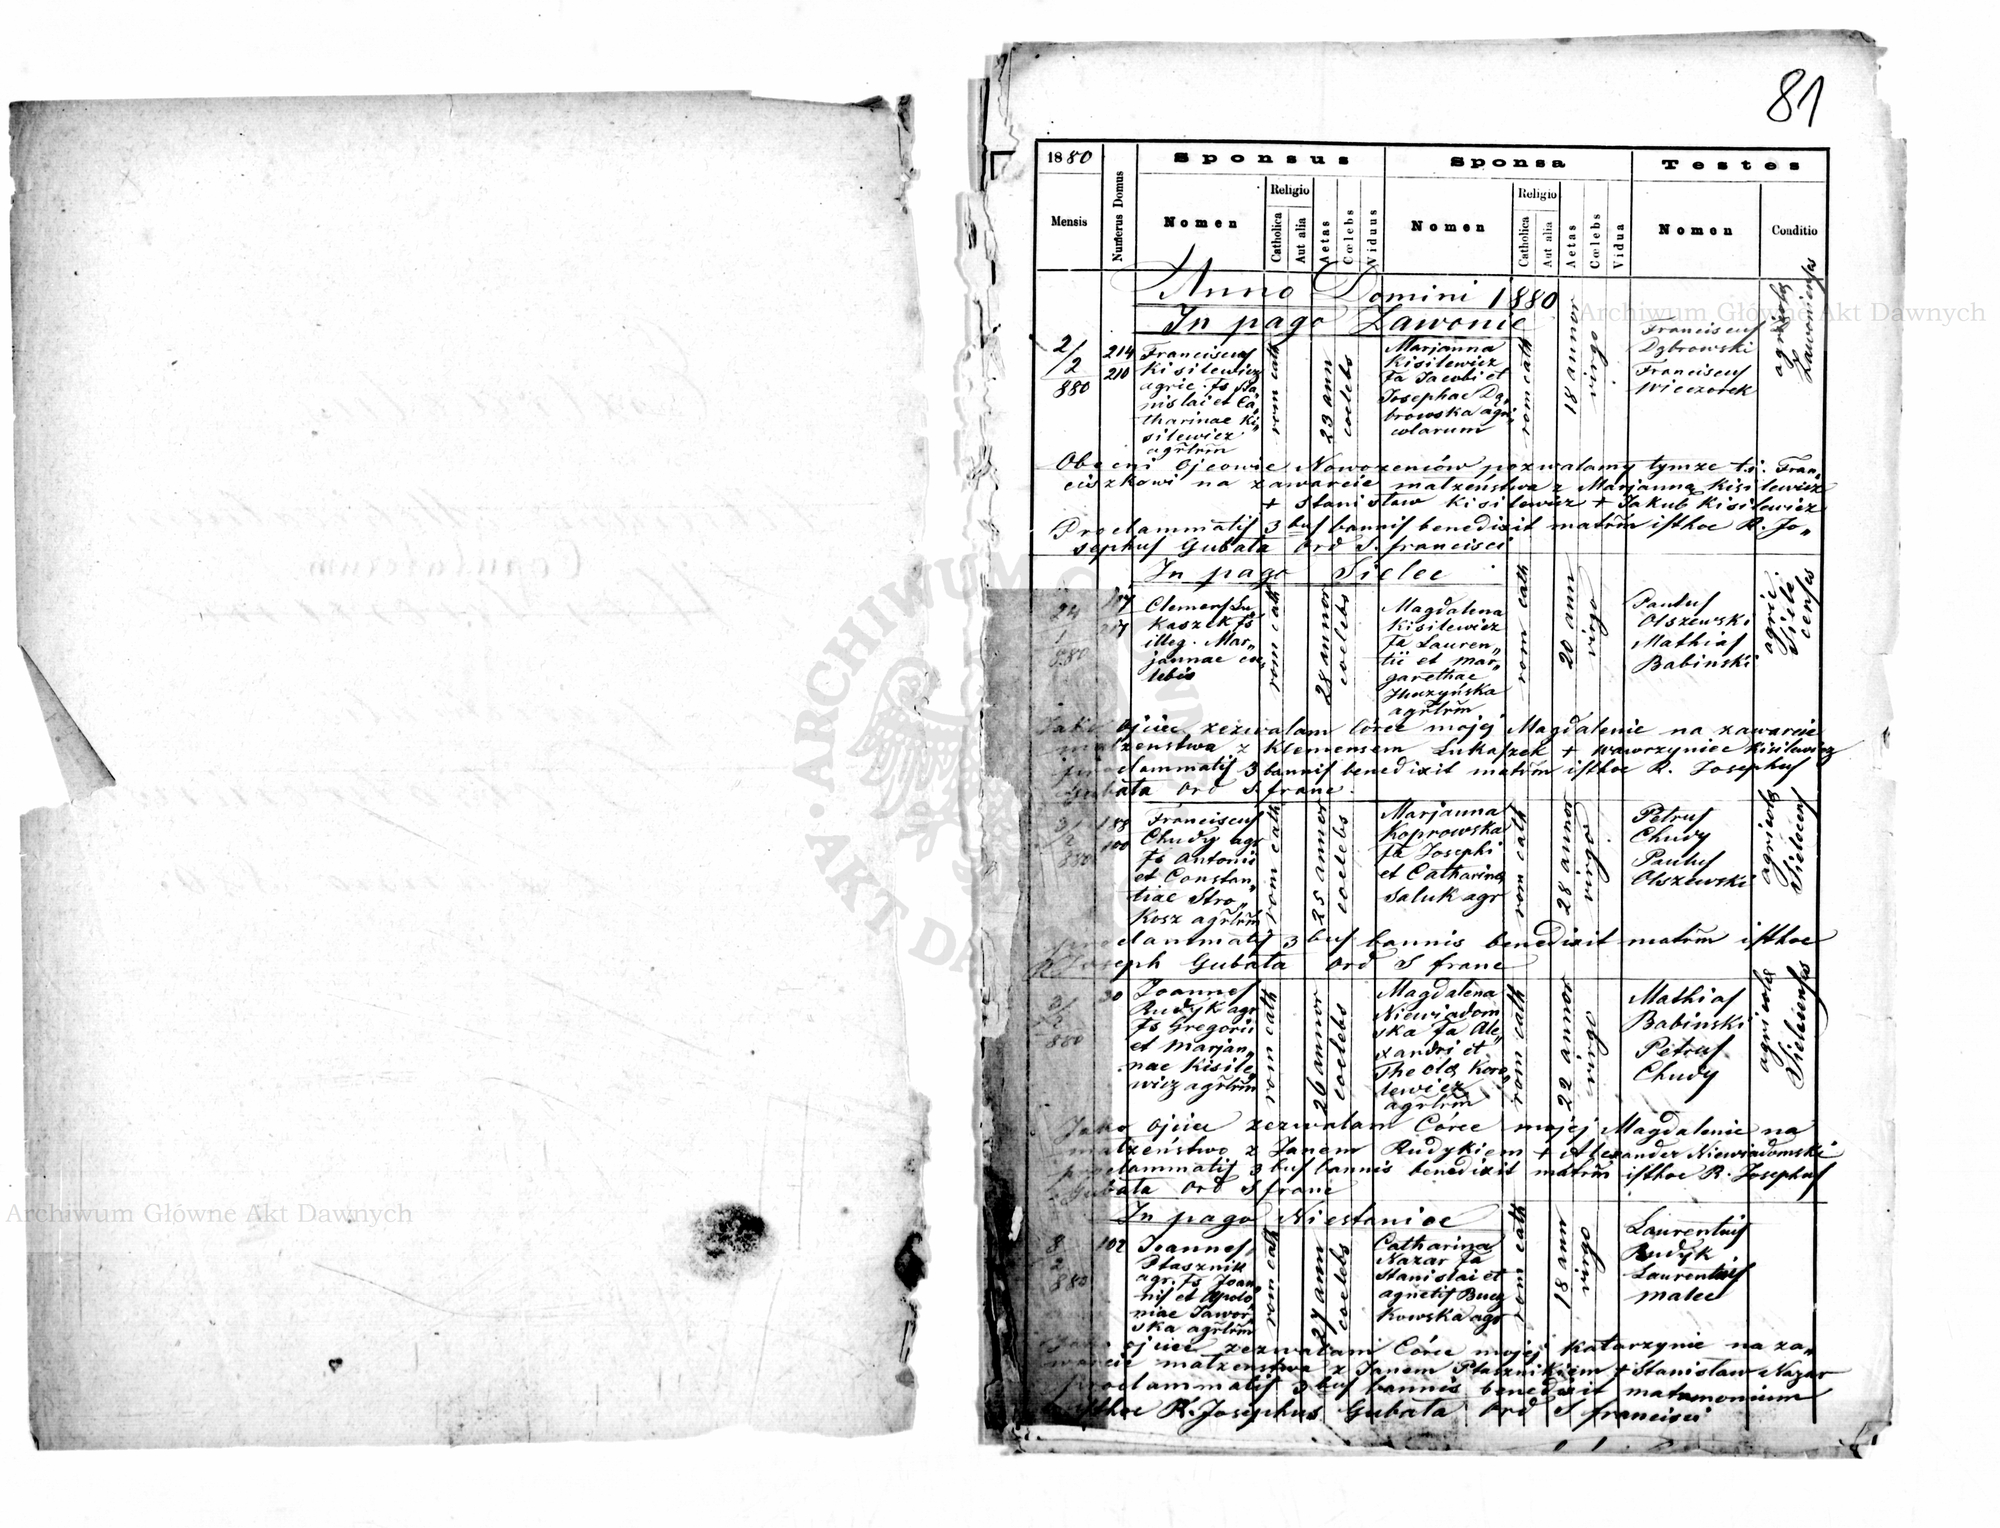 81
1880
Sponsus
Sponsa
Testes
Mensis
Numerus Domus
Nomen
Religio
Catholica
Aut alia
Aetas
Cœlebs
Viduus
Nomen
Religio
Catholica
Aut alia
Aetas
Cœlebs
Vidua
Nomen
Conditio
Anno Domini 1880
In pago Zawonie
2/2
880
214
210
Franciscus
Kisilewicz
agric. fs Sta„
nislai et Ca„
tharinae Ki„
silewicz
agr̃lr̃m
rom cath
23 ann
coelebs
Marjanna
Kisilewicz
fa Jacobi et
Josephae Dą„
browska agri„
colarum
rom cath
18 annor
virgo
Franciscus
Dąbrowski
Franciscus
Wieczorek
agricolae
Zawonienses
Obecni Ojcowie Nowozeńców pozwalamy tymze t.j. Fran„
ciszkowi na zawarcie małzeństwa z Marjanną Kisilewicz
+ Stanisław Kisilewicz + Jakub Kisilewicz
Proclammatis 3bus bannis benedixit matr̃m isthoc R. Jo„
sephus Gubała Ord S. francisci
In pago Sielec
24
1
880
117
217
Clemens Łu„
kaszek fs
illeg. Mar„
jannae coe„
lebis
rom cath
28 annor
coelebs
Magdalena
Kisilewicz
fa Lauren„
tii et Mar„
garethae
agr̃lr̃m
rom cath
20 ann
virgo
Paulus
Olszewski
Mathias
Babinski
agric
Siele
censes
Jako Ojciec zezwalam Córce mojej Magdalenie na zawarcie
małzenstwa z Klemensem Łukaszek + Wawrzyniec Kisilewicz
proclammatis 3 bannis benedixit matr̃m isthoc R. Josephus
Gubała Ord S. franc.
3/2
880
188
100
Franciscus
Chudy agr
fs Antonii
et Constan„
tiae Stro„
kosz agr̃lr̃m
rom cath
25 annor
coelebs
Marjanna
Koprowska
fa Josephi
et Catharinae
Saluk agr
rom cath
28 annor
virgo
Petrus
Chudy
Paulus
Olszewski
agricolae
Sielecens
proclammatis 3bus bannis benedixit matr̃m isthoc
R Joseph Gubała Ord S franc
3/2
880
30
Joannes
Rudyk agr
fs Gregorii
et Marjan„
nae Kisile„
wicz agr̃lr̃m
rom cath
26 annor
coelebs
Magdalena
Niewiadom
ska fa Ale„
xandri et
Theolę Koro„
lewicz
agr̃lr̃m
rom cath
22 annor
virgo
Mathias
Babinski
Petrus
Chudy
agricolae
Sielecenses
Jako ojciec zezwalam Córce mojej Magdalenie na
małzeństwo z Janem Rudykiem + Alexander Niewiadomski
proclammatis 3bus bannis benedixit matr̃m isthoc R. Josephus
Gubała Ord S franc
In pago Niestanice
8
2
880
102
Joannes
Ptasznik
agr. fs Joan„
nis et Apolo„
niae Jawor„
ska agr̃lr̃m
rom cath
27 ann
coelebs
Catharina
Nazar fa
Stanislai et
agnetis Bucz
kowska agr
rom cath
18 ann
virgo
Laurentius
Rudyk
Laurentius
Malec
Jako ojciec zezwalam Córce mojej Katarzynie na za„
warcie małzenstwa z Janem Ptasznikiem + Stanisław Nazar
proclammatis 3bus bannis benedixit matrimonium
isthoc R. Josephus Gubała Ord S francisci
Archiwum Główne Akt Dawnych
Archiwum Główne Akt Dawnych
ARCHIWUM
AKT DAWNYCH